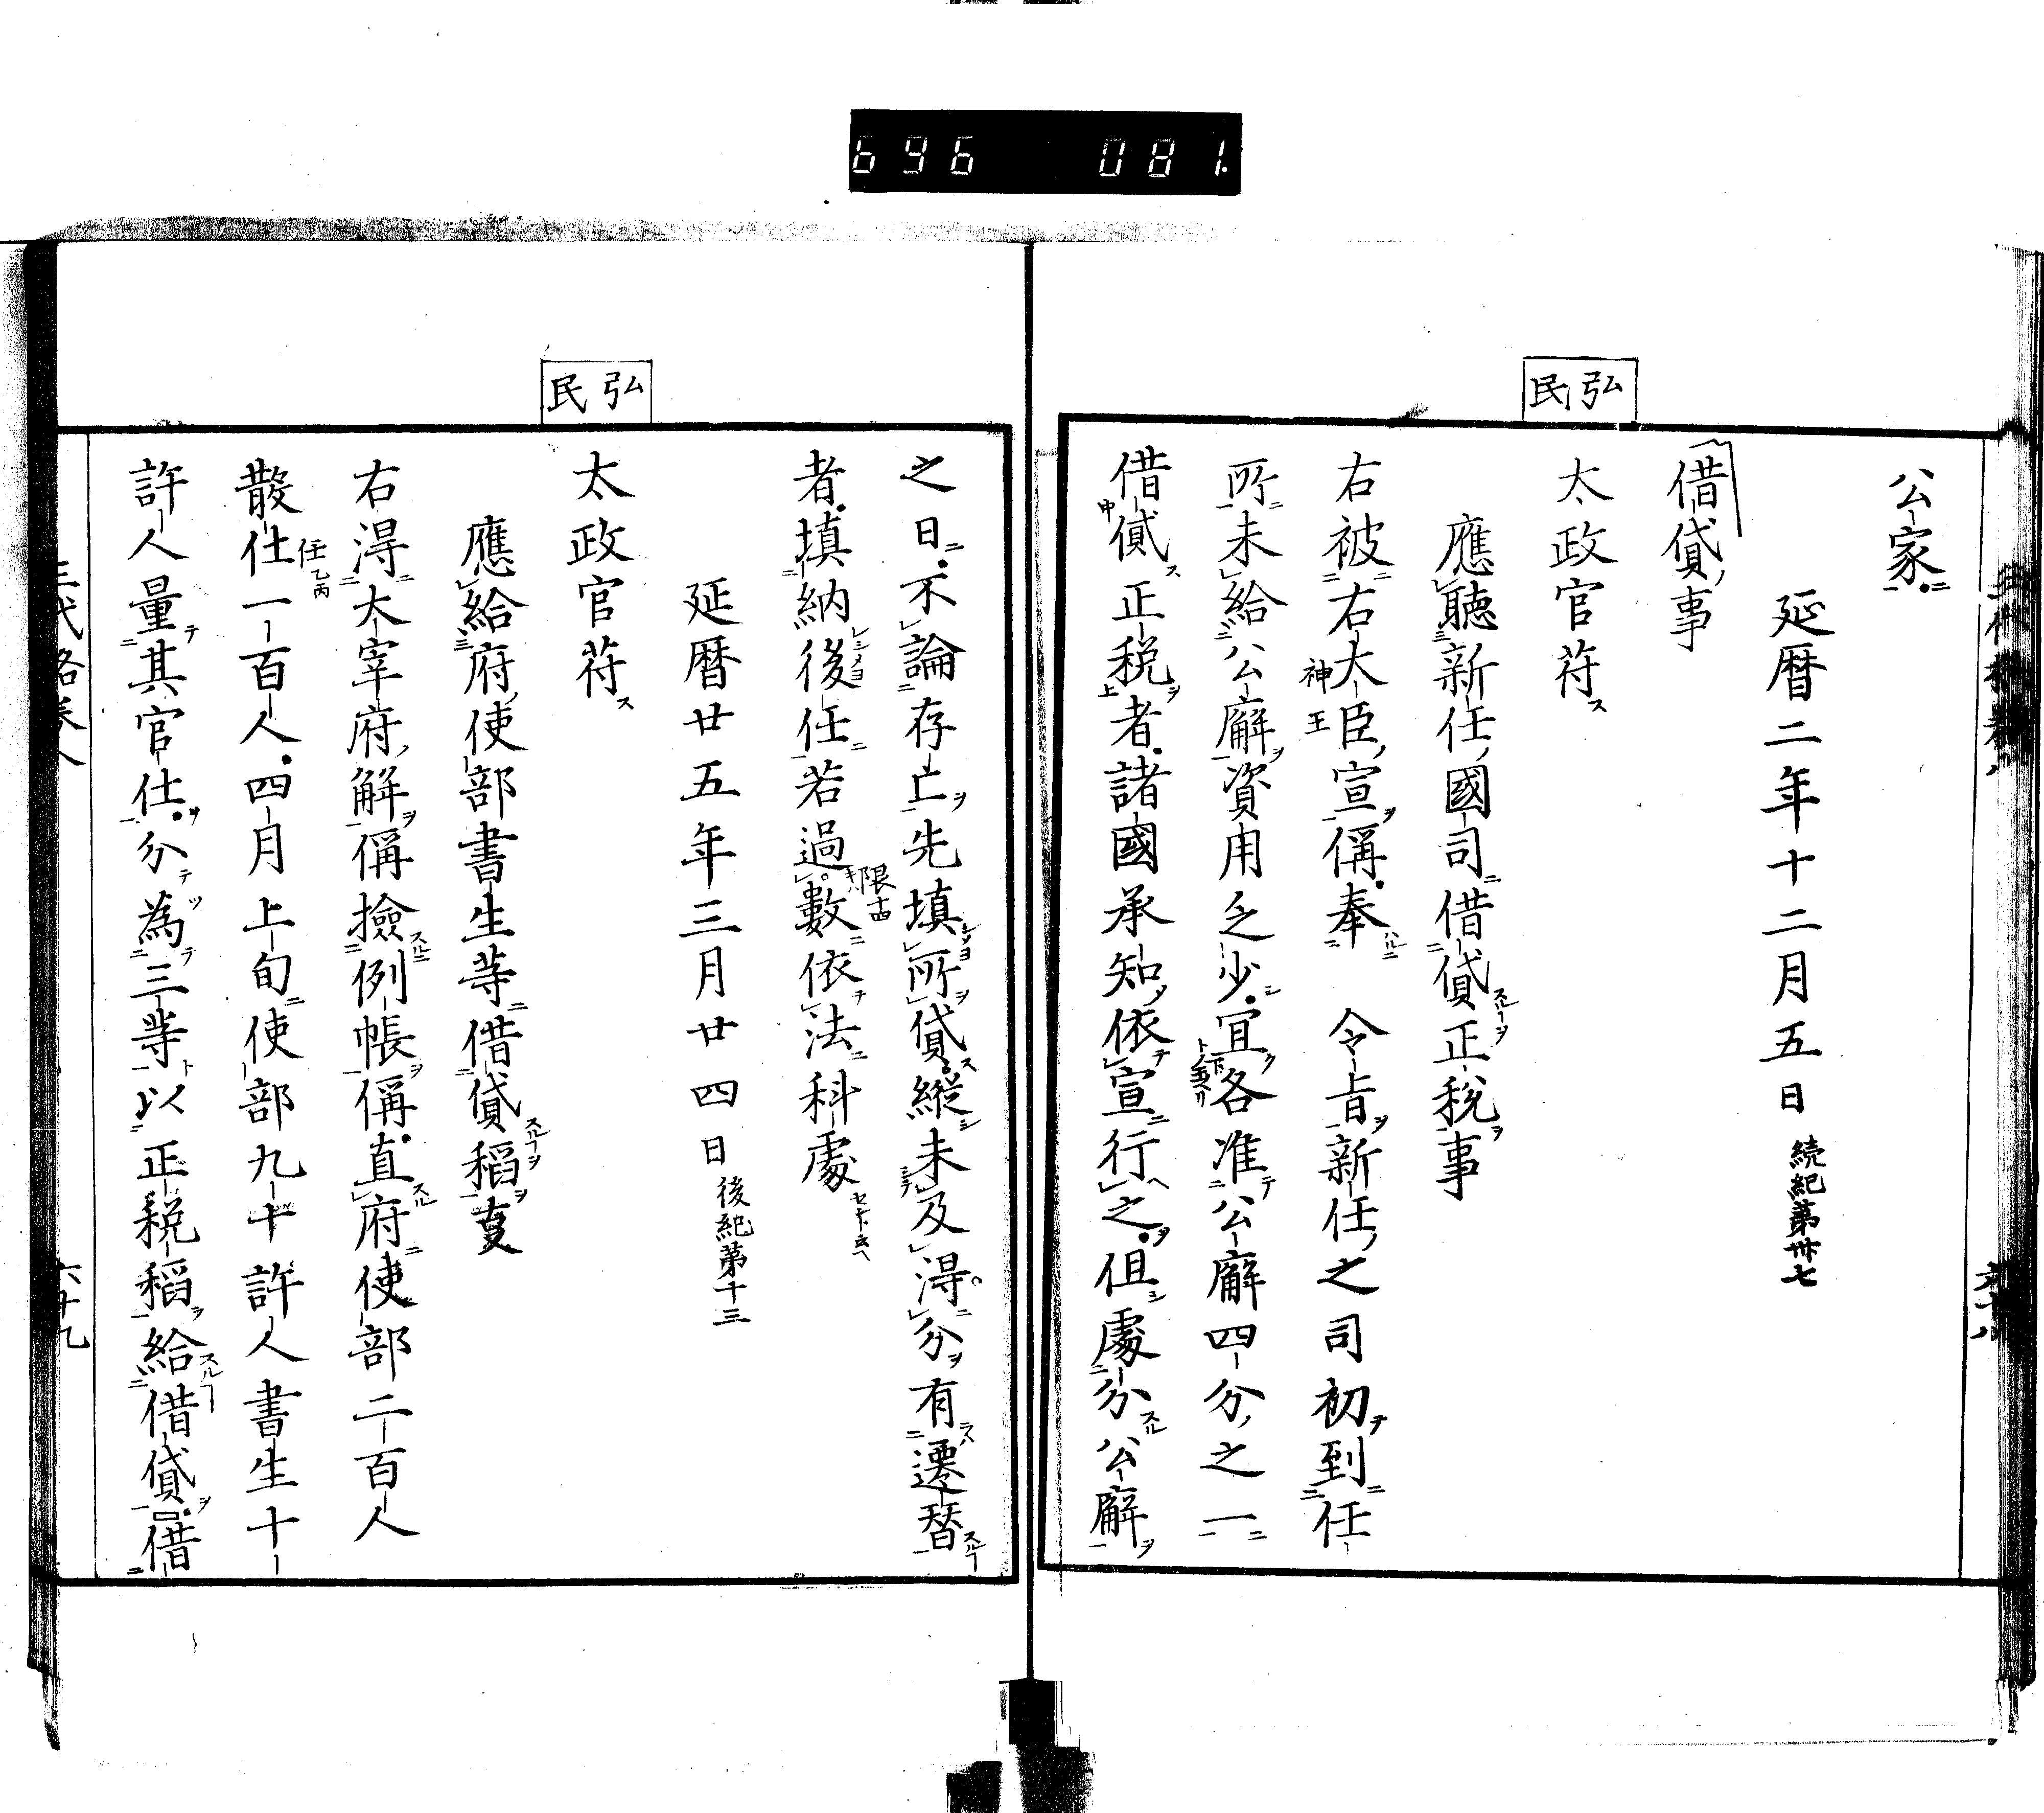 696 081
公家
延暦二年十二月五日 続紀第卅七
借貸事
弘民
太政官苻
應聴新任國司借貸正税事
右被右大臣宣偁奉 令旨新任之司初到任
神王
所未給公廨資用乏少宜各准公廨四分之一
借貣正税者諸國承知依宣行之但處分公廨
之日不論存亡先填所貸縦未及得分有遷替
者填納後任若過數依法科處
延暦廿五年三月廿四日 後紀第十三
弘民
太政官苻
應給府使部書生等借貸稻事
右得大宰府解偁撿例帳偁直府使部二百人
散仕一百人四月上旬使部九十許人書生十
任乙丙
許人量其官仕分為三等以正税稻給借貸借
三代格卷八
六十九